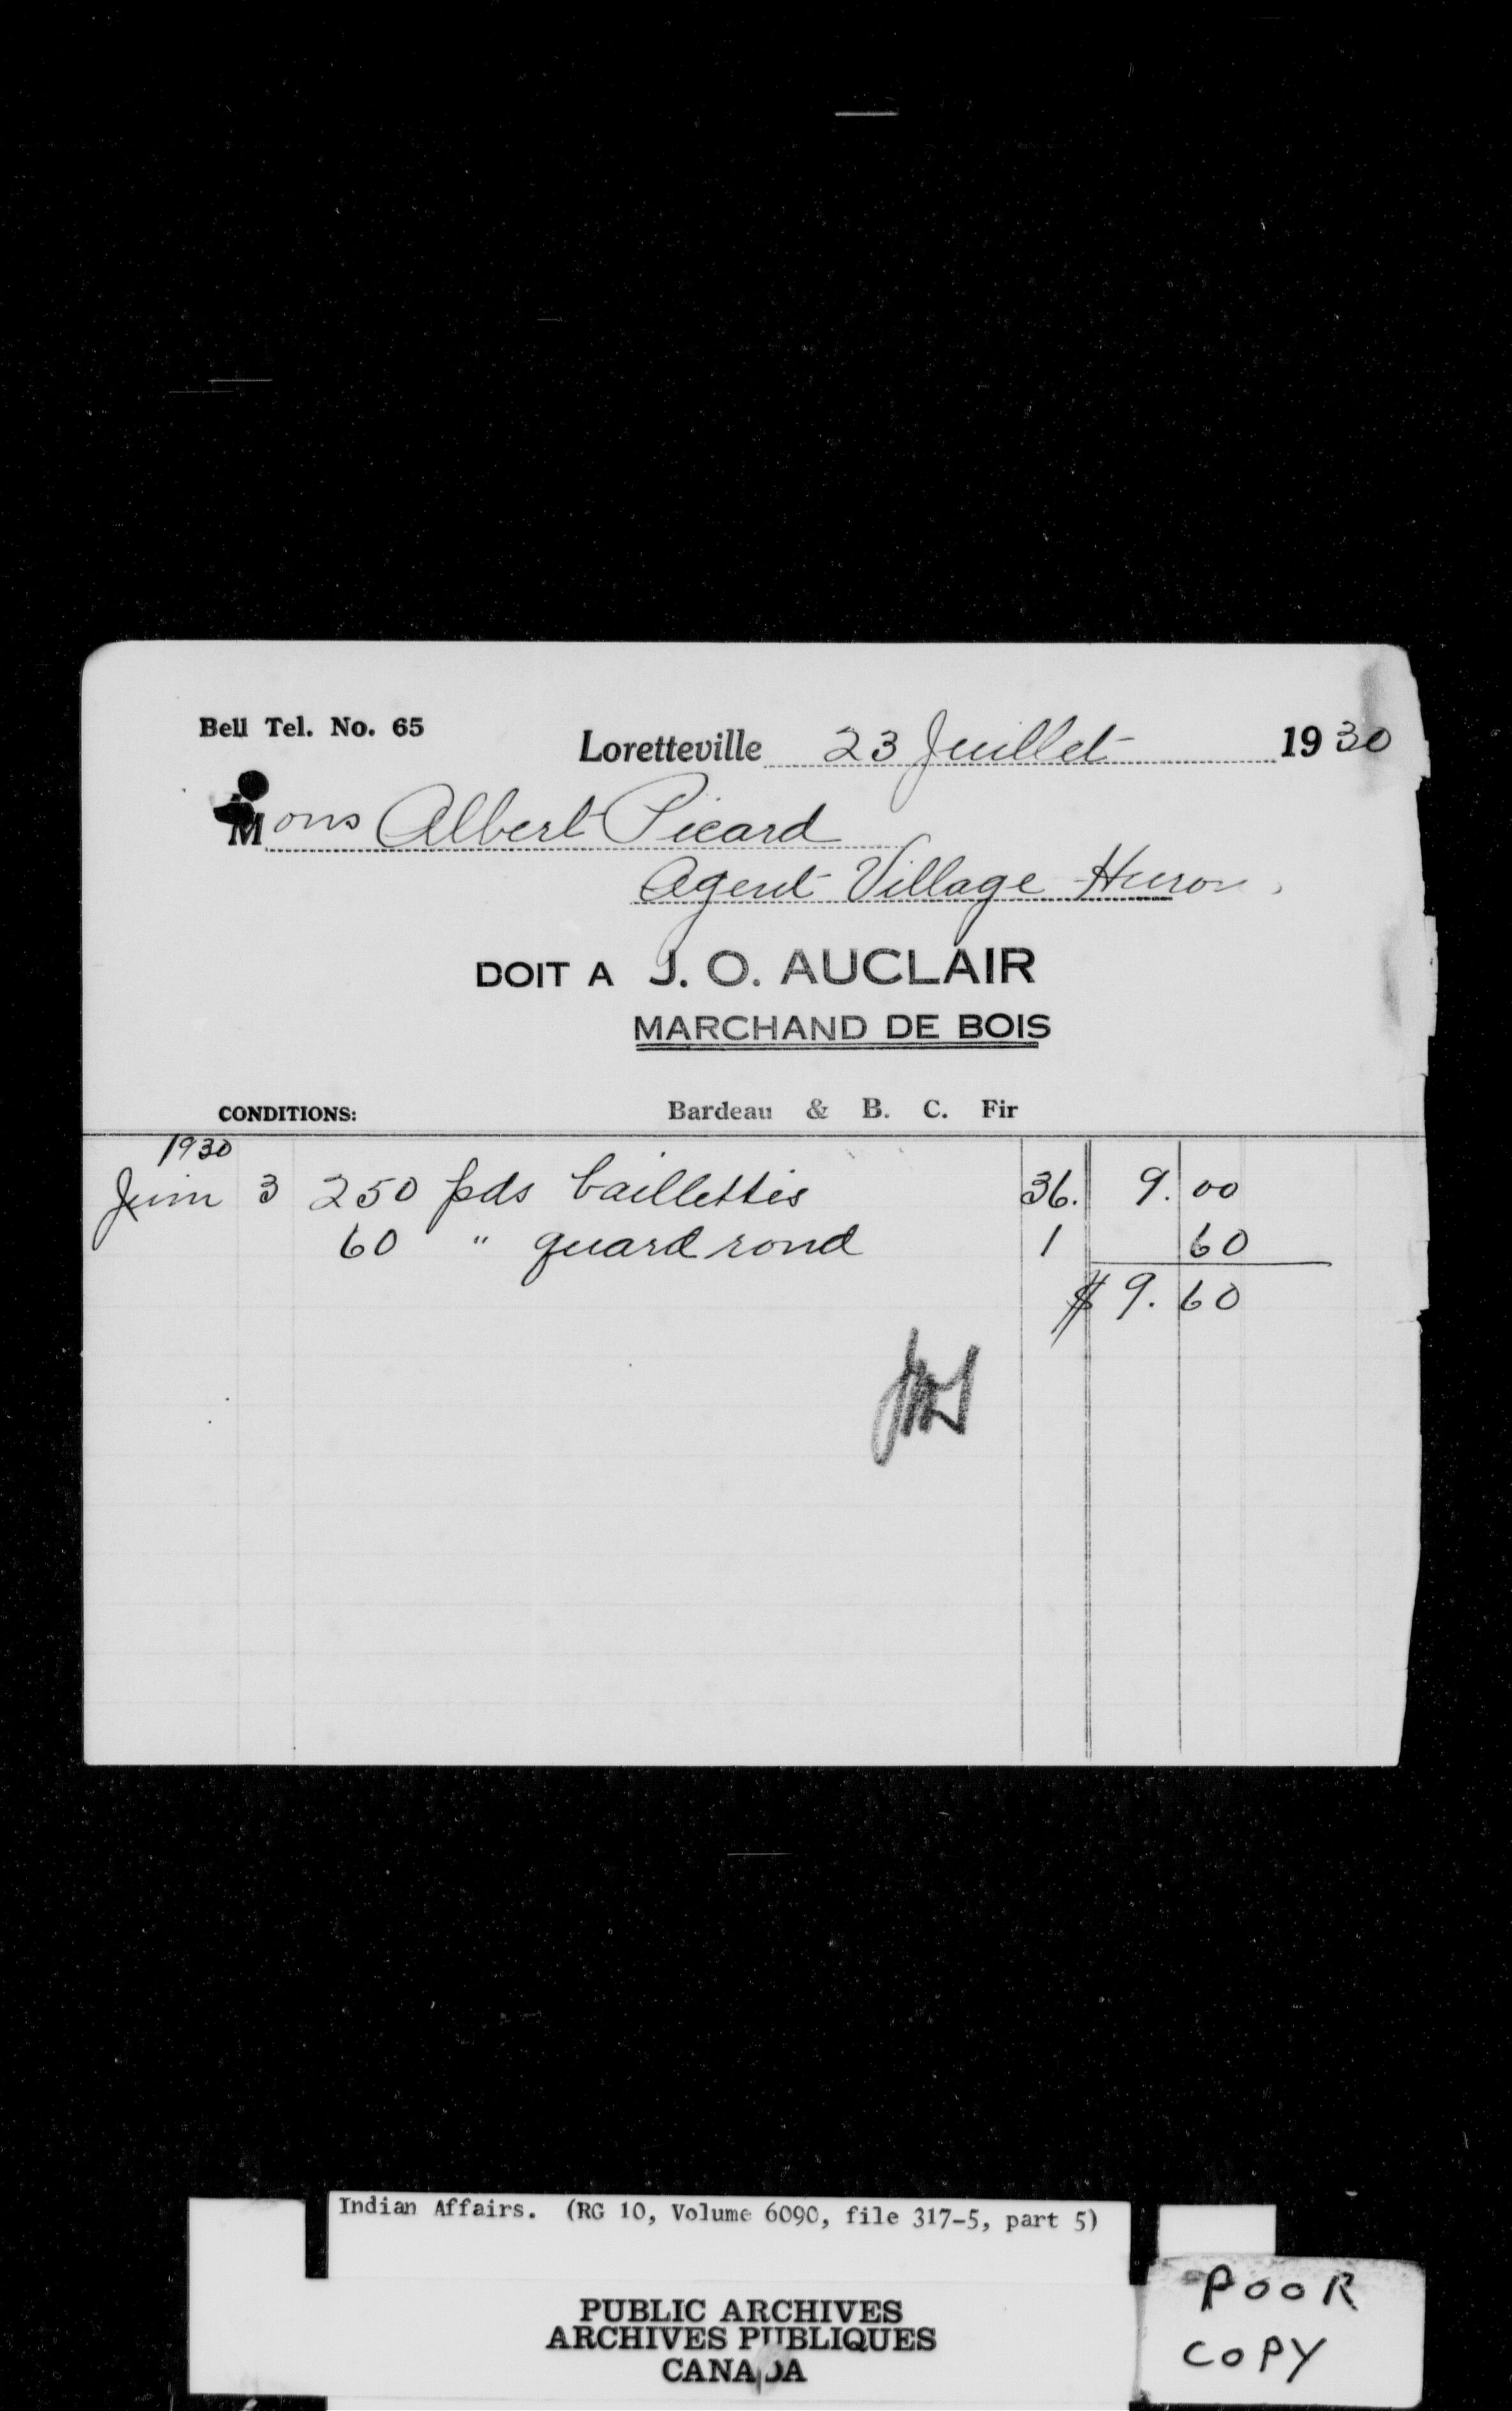 Bell Tel. No. 65
Loretteville 23 Juillet 1930
Mons Albert Picard
Agent Village Huron,
DOIT A J. O. AUCLAIR
MARCHAND DE BOIS
CONDITIONS: Bardeau & B. C. Fir
1930
Juin 3 250 pds baillettes 36. 9.00
60 " quard rond 1 60
$ 9.60
Indian Affairs. (RG 10, Volume 6090, file 317-5, part 5)
PUBLIC ARCHIVES
ARCHIVES PUBLIQUES
CANADA
POOR
COPY